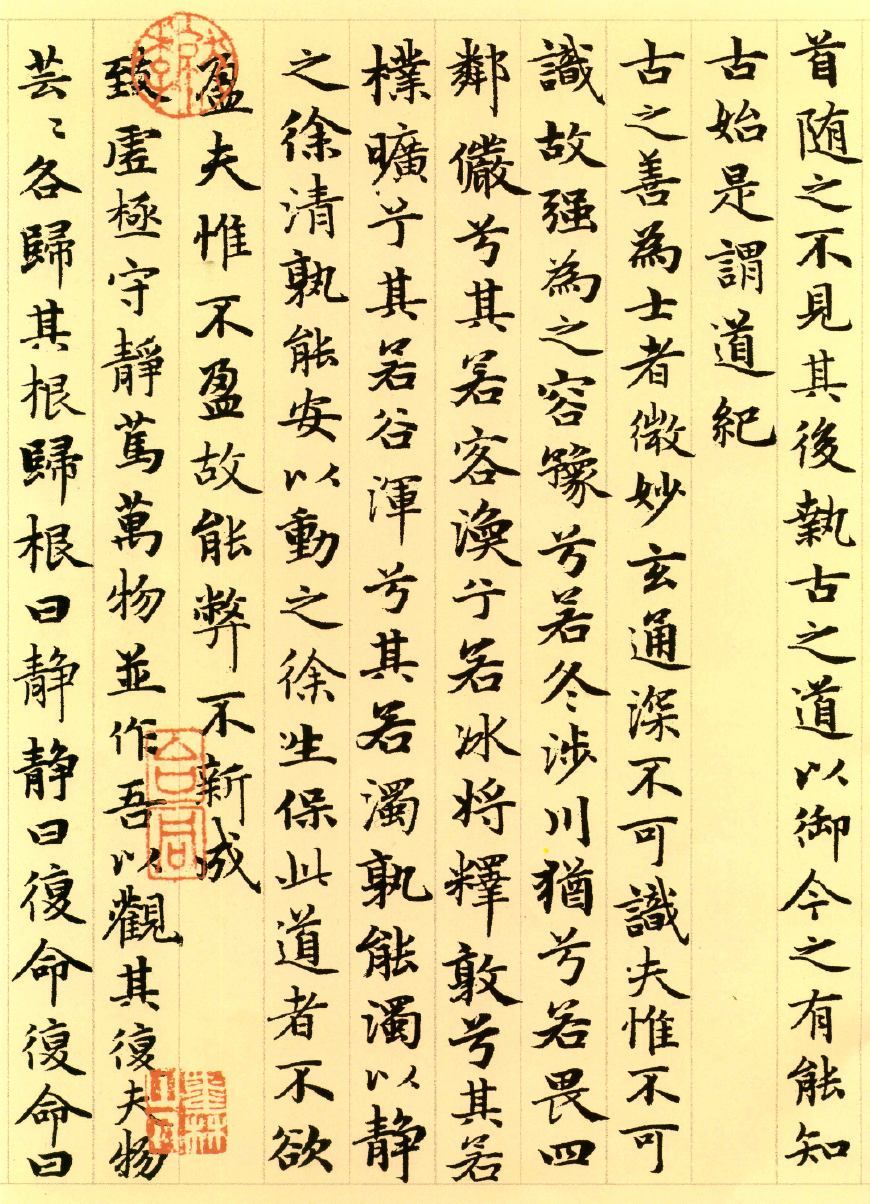 首随之不見其後執古之道以御今之有能知
古始是謂道紀
古之善為士者微妙玄通深不可識夫惟不可
識故强為之容豫兮若冬涉川猶兮若畏四
鄰儼兮其若客渙兮若冰将釋敦兮其若
樸曠兮其若谷渾兮其若濁孰能濁以静
之徐清孰能安以動之徐生保此道者不欲
盈夫惟不盈故能弊不新成
致虚極守靜篤萬物並作吾以觀其復夫物
芸〻各歸其根歸根曰静静曰復命復命曰